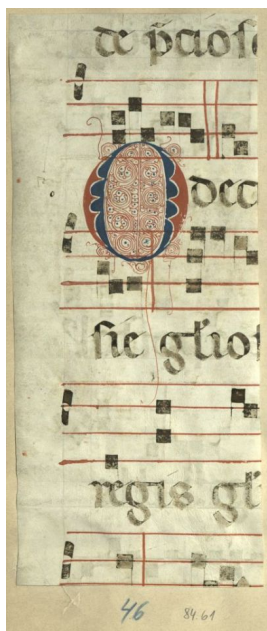 de p̄cioſ
O dec
ſie gl̄ioſ
regis gl̄
46 84.61